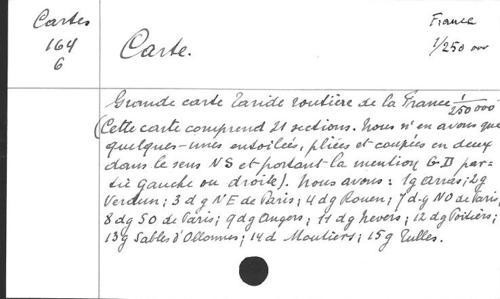 Cartes
164
6
France
1/250 000
Carte.
Grande carte Taride routière de la France 1/250 000
(Cette carte comprend 21 sections. Nous n'en avons que
quelques-unes entoilées, pliées et coupées en deux
dans le sens NS et portant la mention G D par-
tie Gauche ou droite). Nous avons : 1g Arras; 2g
Verdun; 3 dg N'E de Paris; 4 dg Rouen; 7 d.g NO de Paris,
8 dg SO de Paris; 9dg Angers; 11 dg Nevers; 12 dg Poitiers;
13g Sables d'Ollonnes; 14d Moutiers; 15g Tulles.